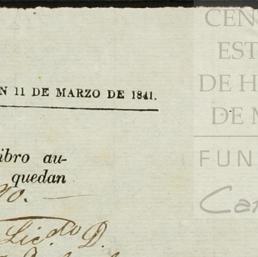 CEN
EST
DE H
DE M
FUN
Ca
N 11 DE MARZO DE 1841.
ibro au-
quedan
Lic.do D.